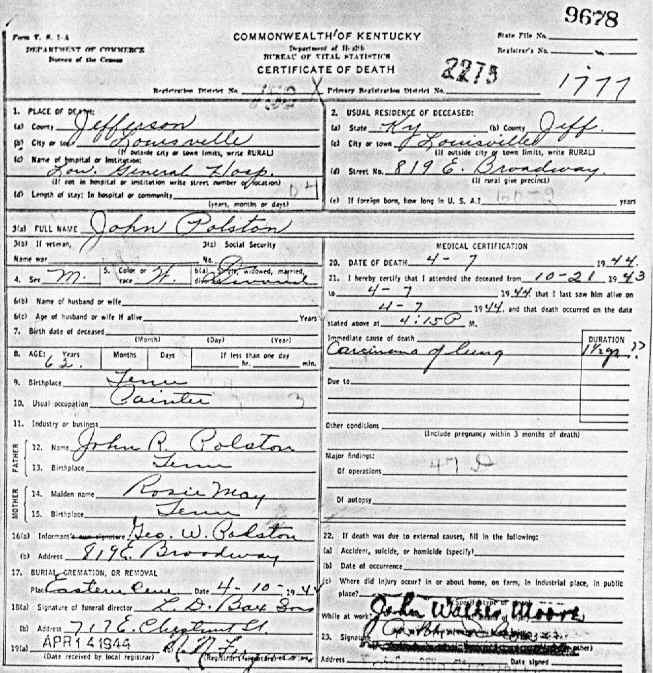 9678
Form V. S. 1-A
DEPARTMENT OF COMMERCE
Bureau of the Census
COMMONWEALTH OF KENTUCKY
Department of Health
BUREAU OF VITAL STATISTICS
CERTIFICATE OF DEATH
State File No.
Registrar's No.
2275
1777
Registration District No.
Primary Registration District No.
1. PLACE OF DEATH:
(a) County Jefferson
(b) City or town Louisville
(If outside city or town limits, write RURAL)
(c) Name of hospital or institution:
Lou. General Hosp.
(If not in hospital or institution write street number or location)
(d) Length of stay: In hospital or community
(years, months or days)
2. USUAL RESIDENCE OF DECEASED:
(a) State Ky (b) County Jeff.
(c) City or town Louisville
(If outside city or town limits, write RURAL)
(d) Street No. 819 E. Broadway
(If rural give precinct)
(e) If foreign born, how long in U. S. A.? years
3(a) FULL NAME John Polston
3(b) If veteran,
Name war
3(c) Social Security
No.
4. Sex M. 5. Color or race W. 6(a) Single, widowed, married,
6(b) Name of husband or wife
6(c) Age of husband or wife if alive Years
7. Birth date of deceased
(Month) (Day) (Year)
8. AGE: Years Months Days If less than one day
62 hr. min.
9. Birthplace Tenn
10. Usual occupation Painter
11. Industry or business
FATHER
12. Name John R. Polston
13. Birthplace Tenn
MOTHER
14. Maiden name Rosie May
15. Birthplace Tenn
16(a) Informant's own signature Geo. W. Polston
(b) Address 819 E. Broadway
17. BURIAL, CREMATION, OR REMOVAL
Place Eastern Cem Date 4-10-1944
18(a) Signature of funeral director L. D. Bax Sons
(b) Address 717 E. Chestnut St.
19(a) APR 14 1944
(Date received by local registrar)
MEDICAL CERTIFICATION
20. DATE OF DEATH 4-7 1944.
21. I hereby certify that I attended the deceased from 10-21 1943
to 4-7 1944, that I last saw him alive on
4-7 1944, and that death occurred on the date
stated above at 4:15 P M.
Immediate cause of death DURATION
Carcinoma of lung 1½ yr ??
Due to
Other conditions
(Include pregnancy within 3 months of death)
Major findings:
Of operations
Of autopsy
22. If death was due to external causes, fill in the following:
(a) Accident, suicide, or homicide (specify)
(b) Date of occurrence
(c) Where did injury occur? in or about home, on farm, in industrial place, in public
place?
While at work?
John Walker Moore
23. Signature
Address Date signed